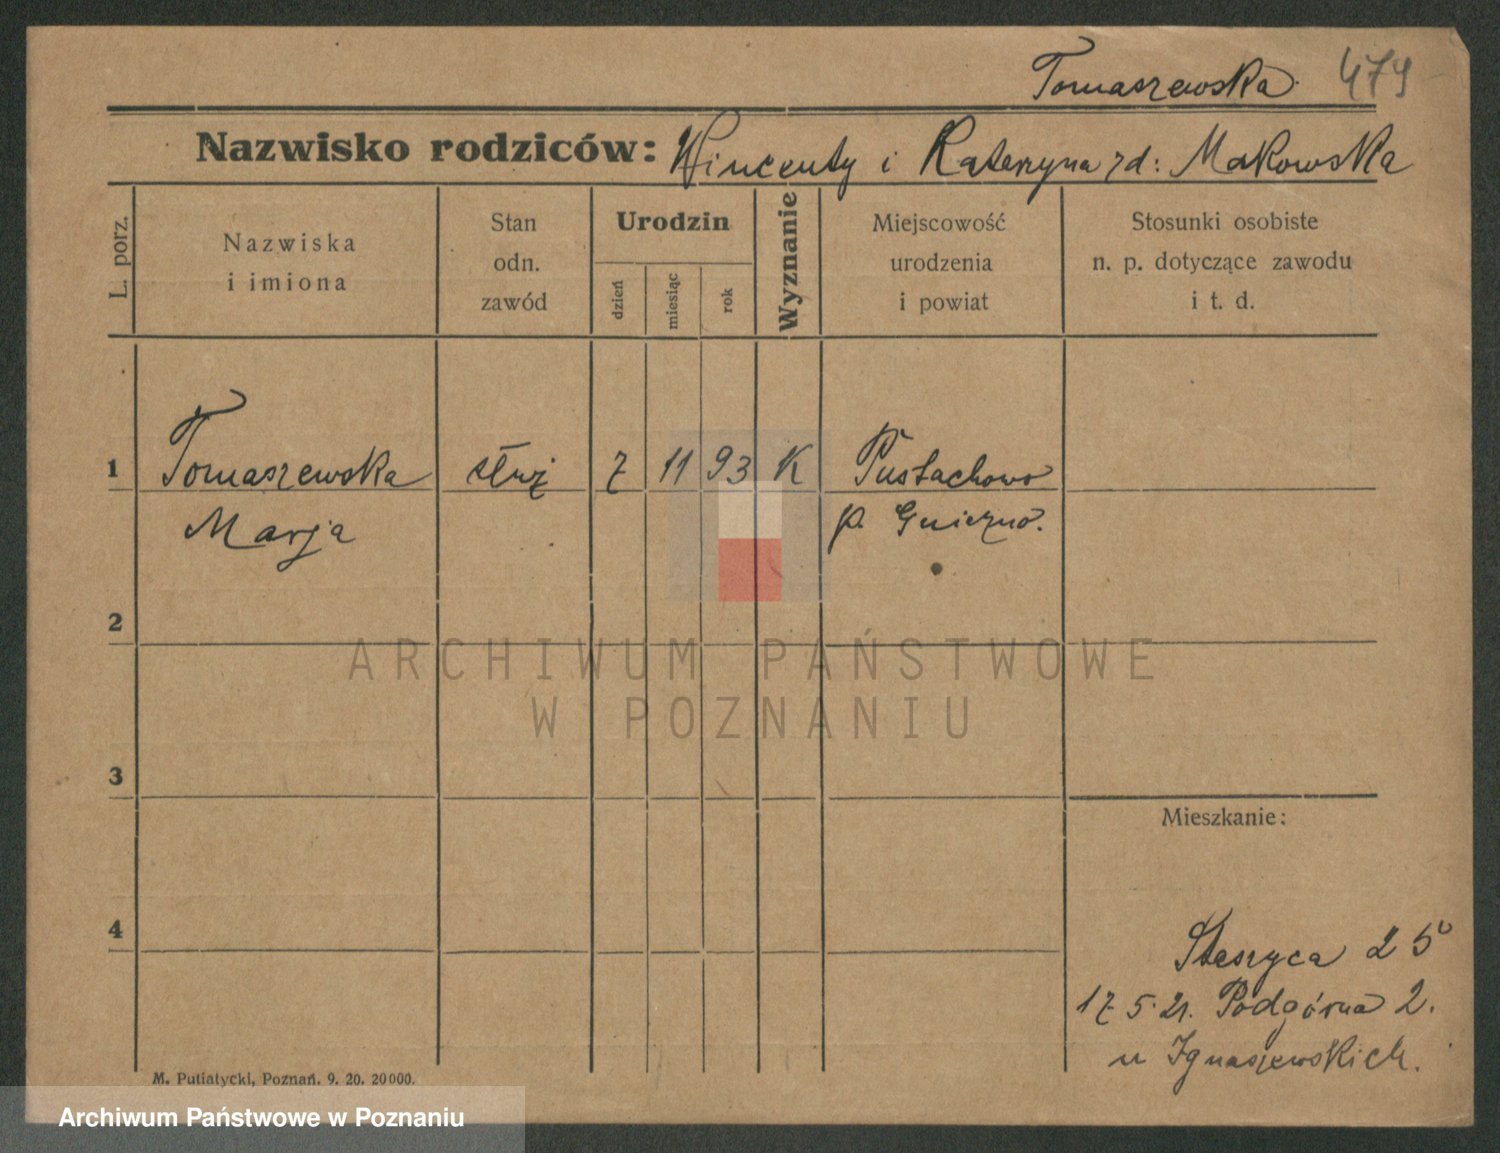 Tomaszewska 479
Nazwisko rodziców: Wincenty i Katarzyna zd: Makowska
L. porz.
Nazwiska
i imiona
Stan
odn.
zawód
Urodzin
dzień
miesiąc
rok
Wyznanie
Miejscowość
urodzenia
i powiat
Stosunki osobiste
n. p. dotyczące zawodu
i t. d.
1 Tomaszewska służ 7 11 93 K Pustachowo
Marja p. Gniezno.
2
3
4
Mieszkanie:
25
17.5.21. Podgórna 2.
u Ignaszewskich.
M. Putiatycki, Poznań. 9. 20. 20000.
ARCHIWUM PAŃSTWOWE
W POZNANIU
Archiwum Państwowe w Poznaniu